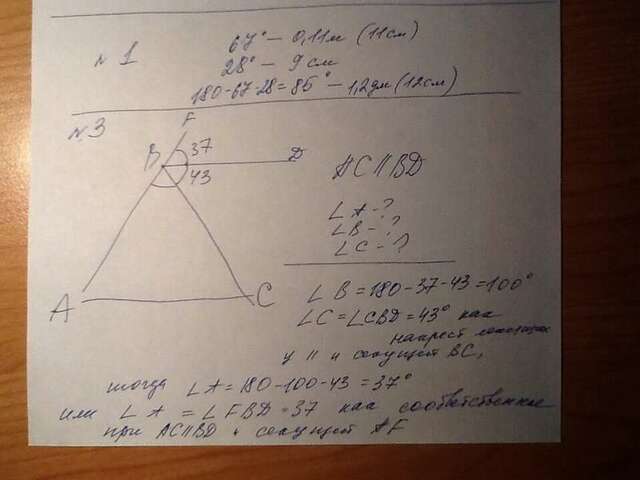 N 1
67° — 0,11м (11см)
28° — 9 см
180-67-28=85° — 1,2дм (12см)
N 3
F
B
37
43
D
A
C
AC||BD
∠A-?
∠B-?
∠C-?
∠B=180-37-43=100°
∠C=∠CBD=43° как
накрест лежащие
у || и секущей BC,
тогда ∠A=180-100-43=37°
или ∠A=∠FBD=37 как соответственные
при AC||BD и секущей AF